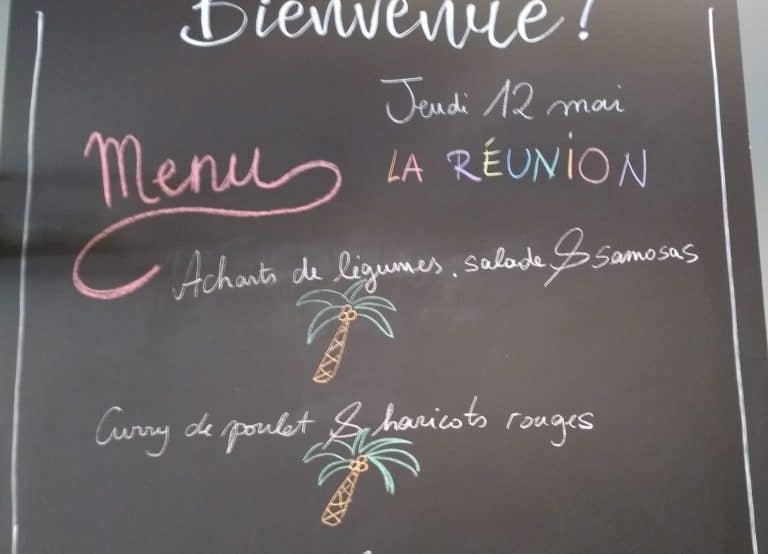 Bienvenue !
Jeudi 12 mai
Menu
LA RÉUNION
Acharts de légumes, salade & samosas
Curry de poulet & haricots rouges